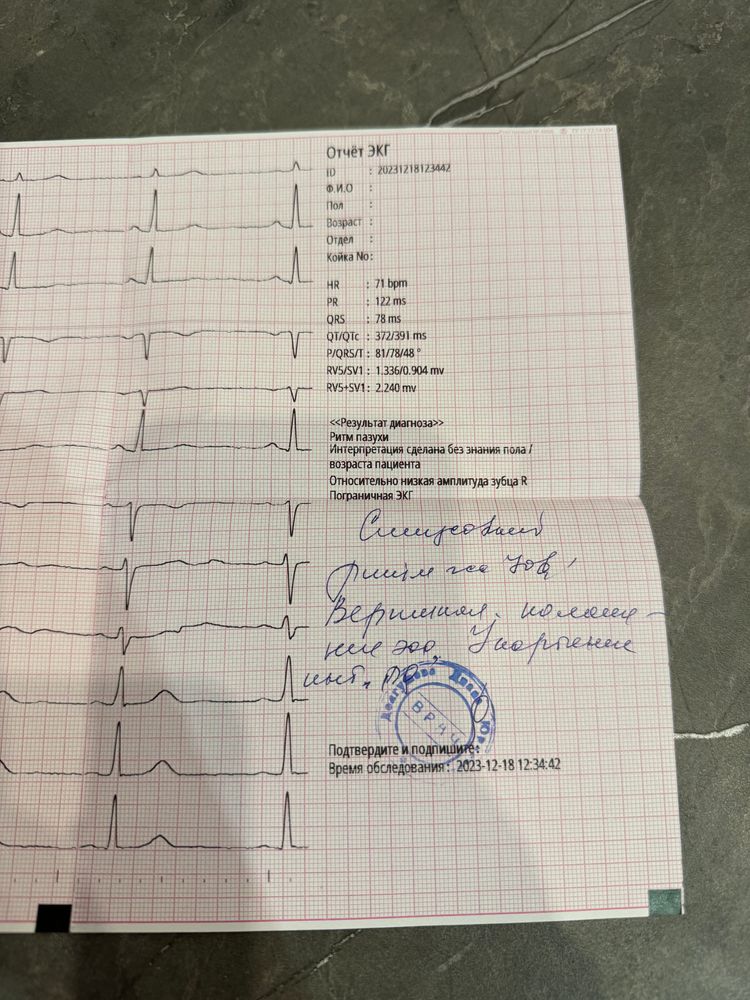 Отчёт ЭКГ
ID : 20231218123442
Ф.И.О :
Пол :
Возраст :
Отдел :
Койка No:
HR : 71 bpm
PR : 122 ms
QRS : 78 ms
QT/QTc : 372/391 ms
P/QRS/T : 81/78/48 °
RV5/SV1 : 1.336/0.904 mv
RV5+SV1 : 2.240 mv
<<Результат диагноза>>
Ритм пазухи
Интерпретация сделана без знания пола /
возраста пациента
Относительно низкая амплитуда зубца R
Пограничная ЭКГ
Синусовый
ритм
Вертикал. положе-
ние ЭОС, Укорочение
инт. PQ
ВРАЧ
Подтвердите и подпишите:
Время обследования : 2023-12-18 12:34:42